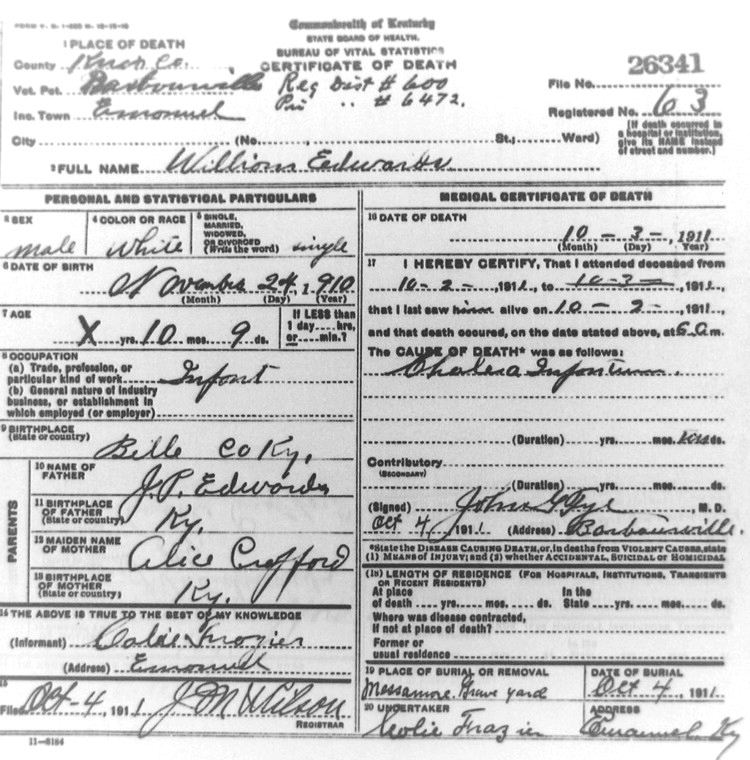 Commonwealth of Kentucky
STATE BOARD OF HEALTH.
BUREAU OF VITAL STATISTICS
CERTIFICATE OF DEATH
1 PLACE OF DEATH
County Knox Co.
Vot. Pct. Barbourville Reg Dist # 600
Pri " # 6472.
Inc. Town Emanuel
City (No. , St.; Ward)
File No. 26341
Registered No. 63
[If death occurred in a hospital or institution, give its NAME instead of street and number.]
2 FULL NAME William Edwards
PERSONAL AND STATISTICAL PARTICULARS
3 SEX
male
4 COLOR OR RACE
White
5 SINGLE, MARRIED, WIDOWED, OR DIVORCED (Write the word) single
6 DATE OF BIRTH
November 24, 1910
(Month) (Day) (Year)
7 AGE
X yrs. 10 mos. 9 ds.
If LESS than 1 day hrs. or min.?
8 OCCUPATION
(a) Trade, profession, or particular kind of work Infant
(b) General nature of industry business, or establishment in which employed (or employer)
9 BIRTHPLACE
(State or country)
Belle Co Ky.
PARENTS
10 NAME OF FATHER
J. P. Edwards
11 BIRTHPLACE OF FATHER
(State or country)
Ky.
12 MAIDEN NAME OF MOTHER
Alice
13 BIRTHPLACE OF MOTHER
(State or country)
Ky.
14 THE ABOVE IS TRUE TO THE BEST OF MY KNOWLEDGE
(Informant) Frazier
(Address) Emanuel
15
Filed Oct-4, 1911 J M Wilson
REGISTRAR
11—8184
MEDICAL CERTIFICATE OF DEATH
16 DATE OF DEATH
10 – 3 – , 1911
(Month) (Day) (Year)
17 I HEREBY CERTIFY, That I attended deceased from
10-2-, 1911, to 10-3-, 1911,
that I last saw him alive on 10-2-, 1911,
and that death occured, on the date stated above, at 6 a m.
The CAUSE OF DEATH* was as follows:
Cholera Infantum.
(Duration) yrs. mos. ds.
Contributory
(SECONDARY)
(Duration) yrs. mos. ds.
(Signed) John G Tye M. D.
Oct 4, 1911 (Address) Barbourville.
*State the DISEASE CAUSING DEATH, or, in deaths from VIOLENT CAUSES, state
(1) MEANS OF INJURY; and (2) whether ACCIDENTAL, SUICIDAL OR HOMICIDAL
(18) LENGTH OF RESIDENCE (FOR HOSPITALS, INSTITUTIONS, TRANSIENTS OR RECENT RESIDENTS)
At place of death yrs. mos. ds. In the State yrs. mos. ds.
Where was disease contracted, if not at place of death?
Former or usual residence
19 PLACE OF BURIAL OR REMOVAL
Messamore Grave yard
DATE OF BURIAL
Oct 4, 1911
20 UNDERTAKER
Frazier
ADDRESS
Emanuel Ky